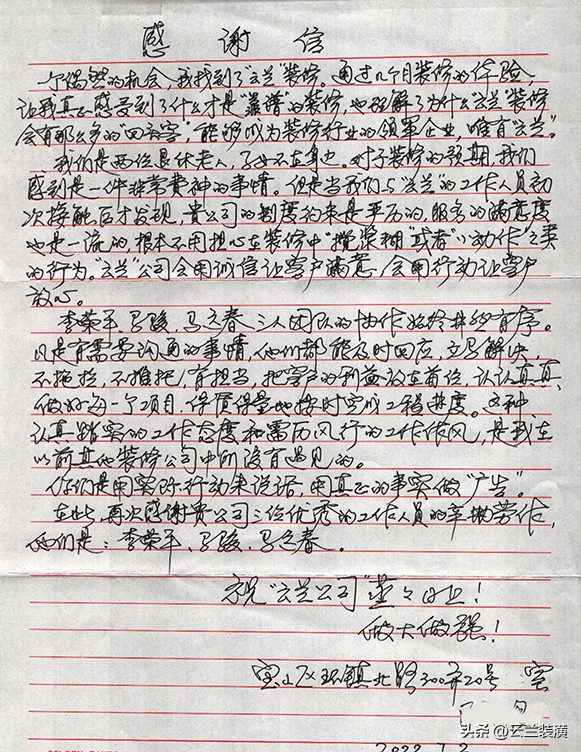 感谢信
一个偶然的机会，我找到了"云兰"装修。通过几个月装修的体验，
让我真正感受到了什么才是"靠谱"的装修，也理解了为什么"云兰"装修
会有那么多的"回头客"，能够成为装修行业的领军企业，唯有"云兰"。
我们是两位退休老人，子女不在身边。对于装修的预期，我们
感到是一件非常费神的事情。但是当我们与"云兰"的工作人员初
次接触后才发现，贵公司的制度约束是严厉的，服务的满意度
也是一流的，根本不用担心在装修中"搅浆糊"或者"小动作"之类
的行为。"云兰"公司会用诚信让客户满意，会用行动让客户
放心。
李荣平、马骏、马立春三人团队的协作始终井然有序。
凡是有需要沟通的事情，他们都能及时回应，立马解决，
不拖拉，不推托，有担当，把客户的利益放在首位，认认真真
做好每一个项目，保质保量地按时完成工程进度。这种
认真踏实的工作态度和雷厉风行的工作作风，是我在
以前其他装修公司中所没有遇见的。
你们是用实际行动来说话，用真正的事实做"广告"。
在此，再次感谢贵公司三位优秀的工作人员的辛勤劳作，
他们是：李荣平、马骏、马立春。
祝"云兰公司"蒸々日上！
做大做强！
宝山区环镇北路300弄20号 室
2022.7.2
头条@云兰装潢